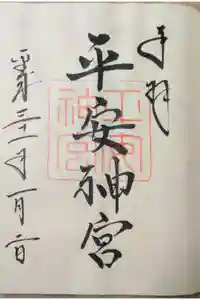 奉拝
平安神宮
平成三十一年一月二日
平安神宮